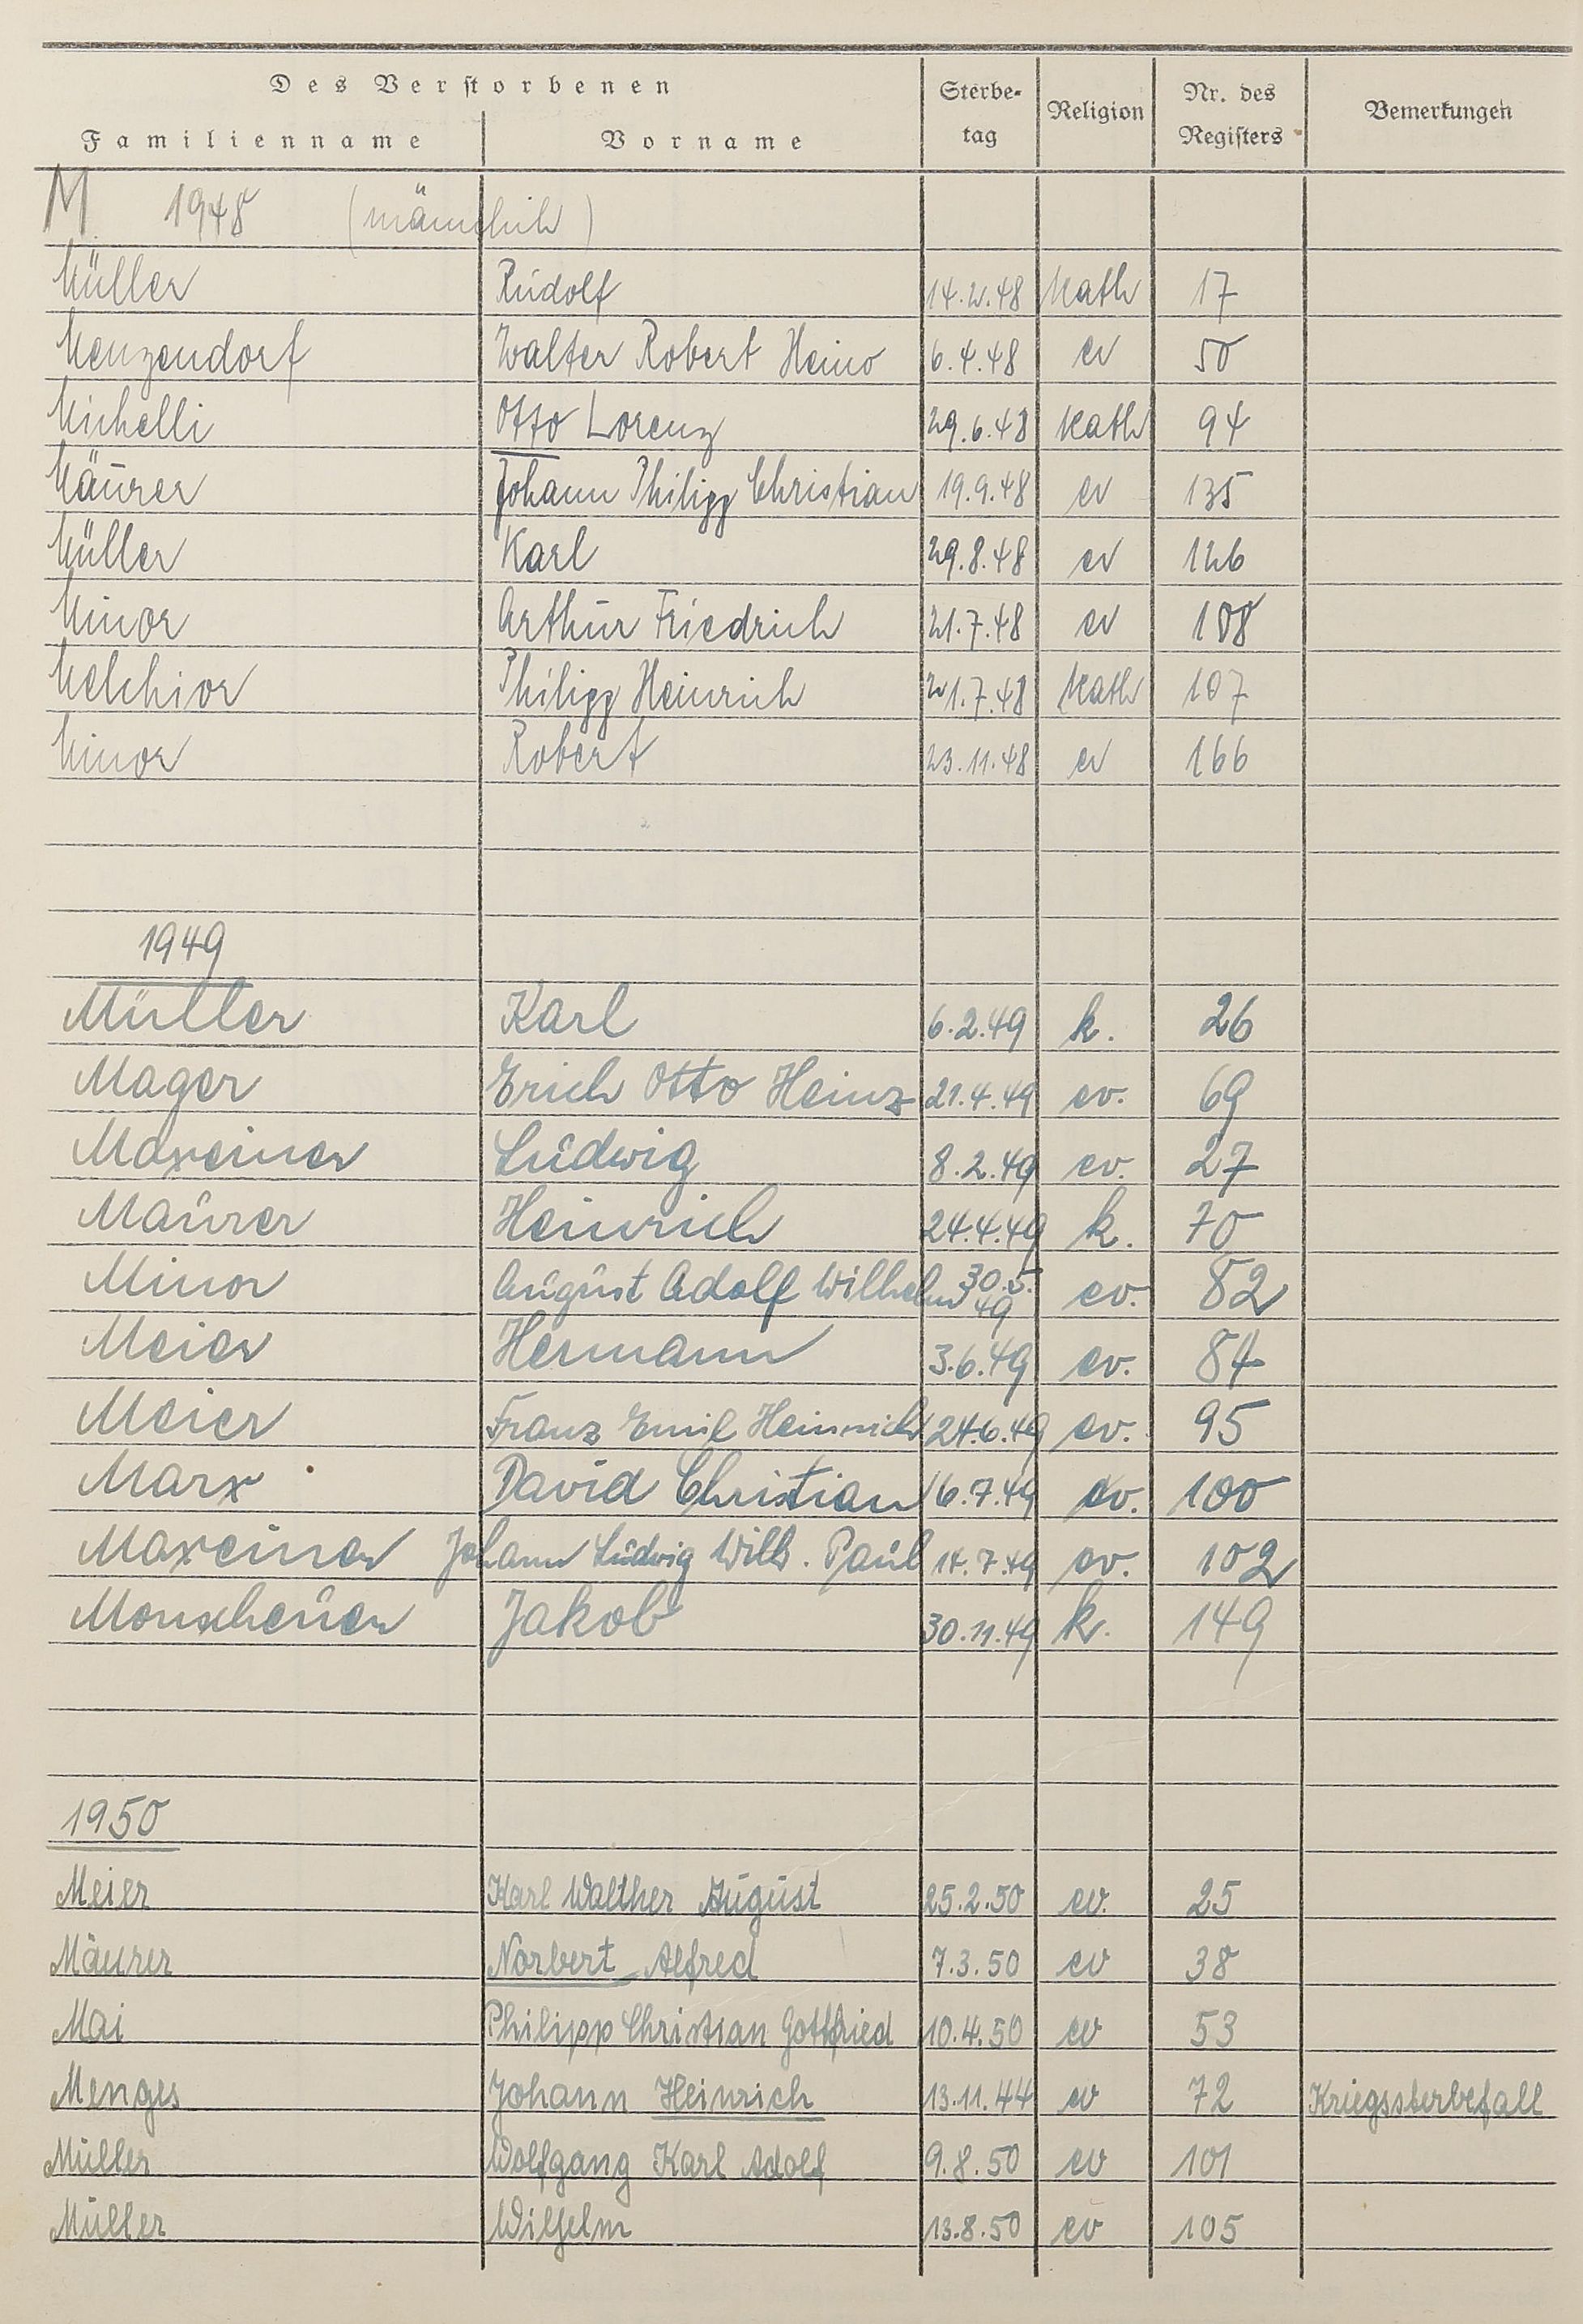 Des Verstorbenen
Familienname Vorname Sterbe-tag Religion Nr. des Registers Bemerkungen
M 1948 (männlich)
Müller Rudolf 14.2.48 kath 17
Menzendorf Walter Robert Heino 6.4.48 ev 50
Michelli Otto Lorenz 29.6.48 kath 94
Mäurer Johann Philipp Christian 19.9.48 ev 135
Müller Karl 29.8.48 ev 126
Minor Arthur Friedrich 21.7.48 ev 108
Melchior Philipp Heinrich 21.7.48 kath 107
Minor Robert 23.11.48 ev 166
1949
Müller Karl 6.2.49 k. 26
Mager Erich Otto Heinz 21.4.49 ev. 69
Maxeiner Ludwig 8.2.49 ev. 27
Maurer Heinrich 24.4.49 k. 70
Minor August Adolf Wilhelm 30.5.49 ev. 82
Meier Hermann 3.6.49 ev. 84
Meier Franz Emil Heinrich 24.6.49 ev. 95
Marx David Christian 16.7.49 ev. 100
Maxeiner Johann Ludwig Wilh. Paul 14.7.49 ev. 102
Monscheuer Jakob 30.11.49 k. 149
1950
Meier Karl Walther August 25.2.50 ev. 25
Mäurer Norbert Alfred 7.3.50 ev 38
Mai Philipp Christian Gottfried 10.4.50 ev 53
Menges Johann Heinrich 13.11.44 ev 72 Kriegssterbefall
Müller Wolfgang Karl Adolf 9.8.50 ev 101
Müller Wilhelm 13.8.50 ev 105